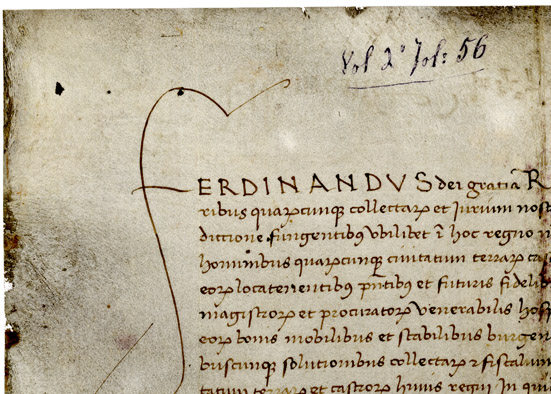 Vol 2º fol: 56
FERDINANDVS dei gratia R
ribus quaꝝcunqꝫ collectaꝝ et Jurium nost
dictione fungentibꝰ vbilibet ī hoc regno
hominibus quaꝝcunqꝫ ciuitatum terraꝝ cas
eoꝝ locatenentibꝰ pn̄tibꝰ et futuris fidelib
magistroꝝ et procuratoꝝ venerabilis hosp
eoꝝ bonis mobilibus et stabilibus burgen
buscunqꝫ solutionibus collectaꝝ ⁊ fiscalium
tatum terraꝝ et castroꝝ huius regni In qui